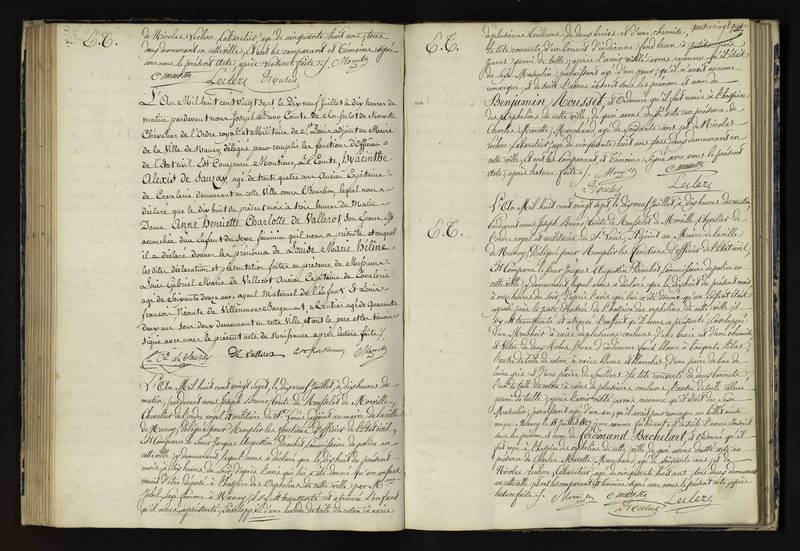 de Nicolas Leclerc, Cabaretier, agé de cinquante huit ans, tous
deux demeurant en cette ville, et ont les comparant et témoins signé
avec nous le présent acte, après lecture faite /.
C. marotte
Leclerc
L. C.
L'An Mil huit cent vingt sept le Dix neuf Juillet à dix heures du
matin pardevant nous Joseph Bruno Comte de
Chevalier de l'Ordre royal et Militaire de St Louis adjoint au Maire
de la Ville de Nancy délégué pour remplir les fonctions d'Officier
de l'état civil Est Comparu Monsieur Le Comte, Hyacinthe
Alexis de Sauzay, agé de trente quatre ans Ancien Capitaine
de Cavalerie demeurant en cette Ville cours Bourbon, lequel nous a
déclaré que le dix huit du présent mois à trois heures du Matin
Dame Anne Henriette Charlotte de Vallerot, son Epouse est
accouchée d'un Enfant du sexe féminin qu'il nous a présenté et auquel
il a déclaré donner les prénoms de Louise Marie Hélène
les dites déclaration et présentation faites en présence de Messieurs
Louis Gabriel Marie de Vallerot Ancien Capitaine de Cavalerie
agé de soixante douze ans, ayeul Maternel de l'Enfant et Louis
François Vicomte de Villeneuve Bargemont, Rentier agé de Quarante
deux ans tous deux demeurant en cette Ville, et ont les père et témoins
Signé avec nous le présent Acte de Naissance après lecture faite /.
Cte de Sauzay
De Vallerot
L'An Mil huit cent vingt sept, le dix neuf Juillet, à dix heures du
matin, pardevant nous Joseph Bruno Comte de
Chevalier de l'ordre royal et militaire de St Louis, adjoint au maire de la ville
de Nancy, délégué pour Remplir les fonctions d'officier de l'état civil,
Est Comparu le sieur Jacques Augustin Drouhot, Commissaire de police en
cette ville y demeurant, lequel nous a déclaré que le dix huit du présent
mois à dix heures du soir, d'après l'avis qui lui a été donné qu'un enfant
venait d'être déposé à l'hospice des Orphelins de cette ville, par
sage femme à Nancy, il s'y est transporté et a trouvé l'enfant
qu'il nous a présenté, enveloppé d'une bande de toile de coton à raies
L. C.
à plusieurs couleurs, de deux braies et d'une chemise,
la tête couverte d'un bonnet d'indienne fond brun à
garni de tulle, après l'avoir visité avons reconnu qu'il était
du sexe Masculin, paraissant agé d'un jour, qu'il n'avait aucune
remarque, et de suite l'avons inscrit sous les prénom et nom de
Benjamin Housset, et Ordonné qu'il fut remis à l'hospice
des Orphelins de cette ville, de quoi avons dressé acte en présence de
Charles Marotte, Marchand agé de soixante ans et de Nicolas
Leclerc Cabaretier, agé de cinquante huit ans, tous deux demeurant en
cette ville, et ont les comparant et témoins signé avec nous le présent
acte, après lecture faite /.
C. marotte
Leclerc
L. C.
L'An Mil huit cent vingt sept, le dix neuf Juillet, à dix heures du matin,
pardevant nous Joseph Bruno, Comte de
l'ordre royal et militaire de St Louis, Adjoint au Maire de la ville
de Nancy, Délégué pour Remplir les fonctions d'officier de l'état civil,
Est Comparu le sieur Jacques Augustin Drouhot, Commissaire de police en
cette ville, y demeurant, lequel nous a déclaré que le dix huit du présent mois
à onze heures du soir, d'après l'avis qui lui a été donné qu'un enfant était
exposé près la porte d'entrée de l'hospice des orphelins de cette ville, il
s'y est transporté et a trouvé l'enfant qu'il nous a présenté, enveloppé
d'un mouchoir à raies de plusieurs couleurs, d'une braie et d'une chemise
et vêtu de deux Robes, l'une d'indienne fond blanc à bouquets lilas,
l'autre de toile de coton à raies bleues et blanches, d'une paire de bas de
laine gris et d'une paire de souliers, la tête couverte de deux bonnets,
l'un de toile de coton à raies de plusieurs couleurs, l'autre de toile
garni de tulle, après l'avoir visité avons reconnu qu'il était du sexe
Masculin, paraissant agé d'un an, qu'il avait pour remarque un billet ainsi
conçu: Nancy le 18 juillet 1827
sous les prénom et nom de Ferdinand Bachelart, et Ordonné qu'il
fut remis à l'hospice des orphelins de cette ville, de quoi avons dressé acte en
présence de Charles Marotte, Marchand agé de soixante ans et de
Nicolas Leclerc, Cabaretier, agé de cinquante huit ans, tous deux demeurant
en cette ville et ont les comparant et témoins signé avec nous le présent acte, après
lecture faite /.
C. marotte
Leclerc